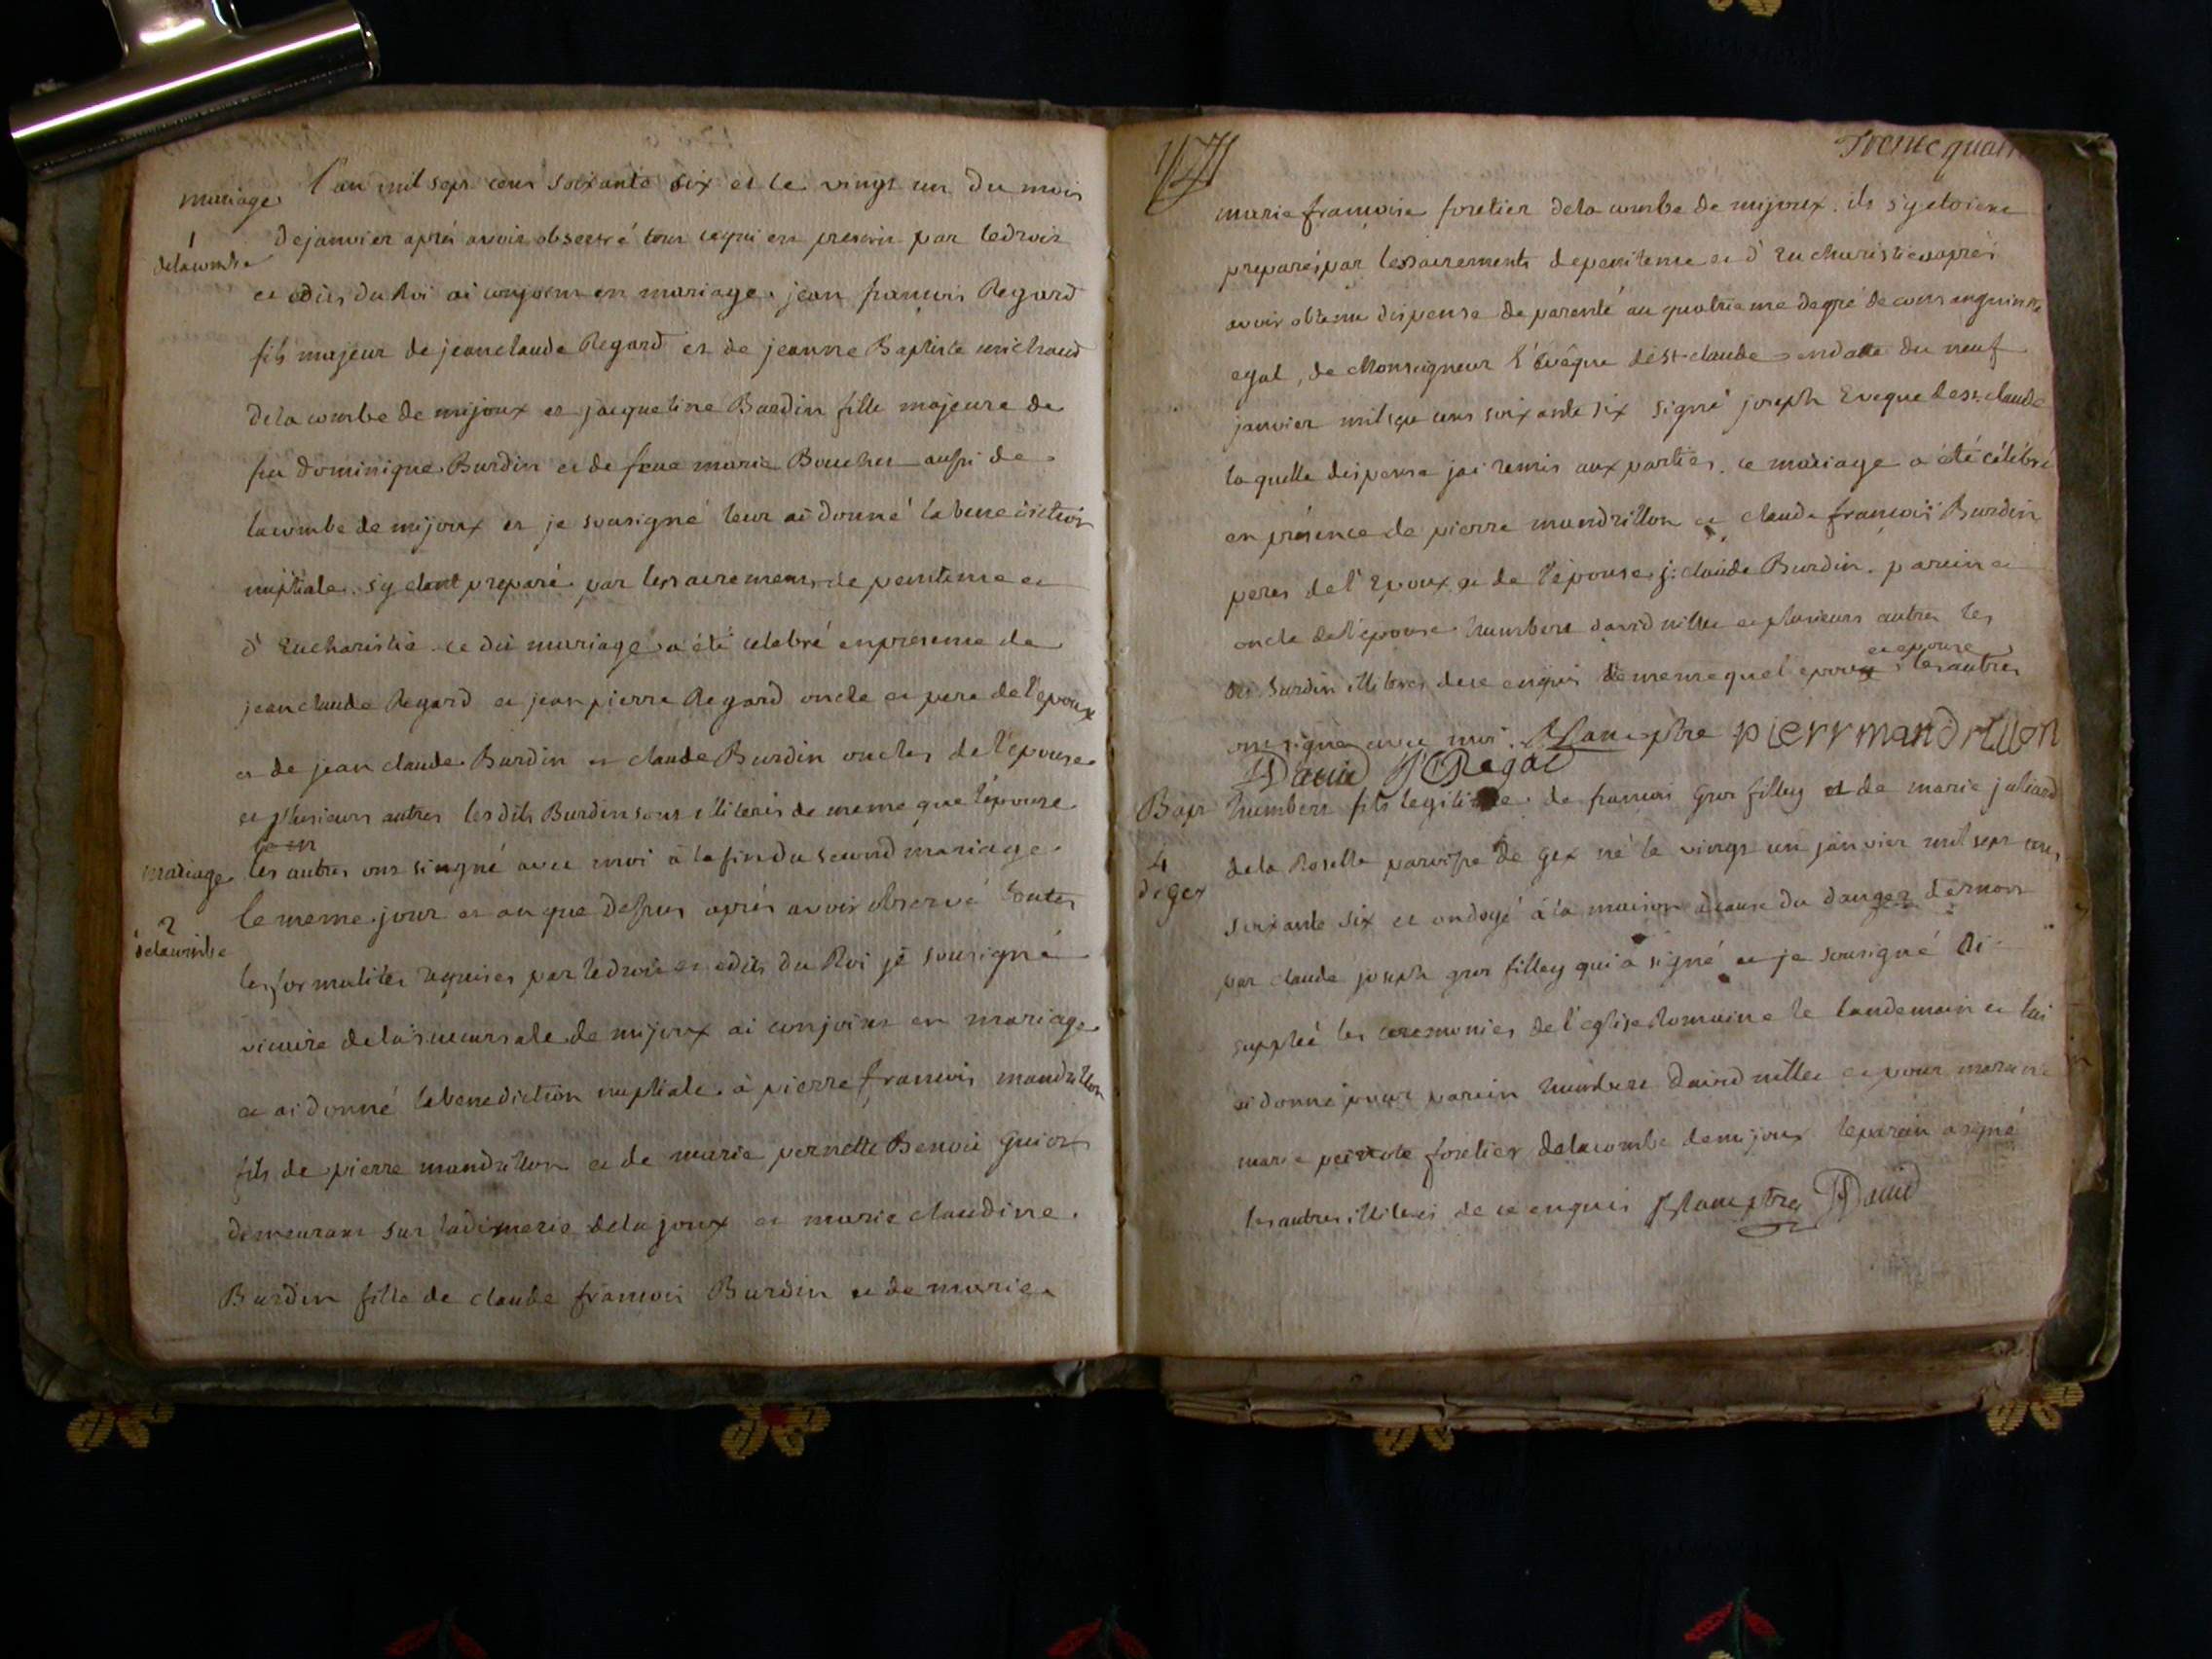 mariage l'an mil sept cens soixante six et le vingt un du mois
1
delacombe
de janvier aprés avoir observé tous ce qui est prescrit par le droit
et edits du Roi ai conjoint en mariage jean francois Regard
fils majeur de jeanclaude Regard et de jeanne Baptiste michaud
dela combe de mijoux et jacqueline Burdin fille majeure de
feu dominique Burdin et de feue marie Boucher aussi de
lacombe de mijoux et je sousigné leur ai donné la benediction
nuptiale. s'y etant preparé par les sacremens de penitence et
d'Eucharistie. ce dit mariage a été celebré en presence de
jean claude Regard et jean pierre Regard oncle et pere de l'epoux
et de jean claude Burdin et claude Burdin oncles de l'épouse
et plusieurs autres les dits Burdin sont illiterés de meme que l'épouse
mariage les autres ont singné avec moi à la fin du second mariage
2
delacombe
le meme jour et an que dessus aprés avoir observé toutes
les formalités requises par le droit et edits du Roi je sousigné
vicaire dela succursale de mijoux ai conjoint en mariage
et ai donné la benediction nuptiale à pierre francois mandrillon
fils de pierre mandrillon et de marie pernette Benoit Guiot
demeurant sur la dixmerie dela joux et marie claudine
Burdin fille de claude francois Burdin et de marie
Trente quatre
marie francoise foretier dela combe de mijoux. ils s'y etoient
preparés par les sacrements de penitence et d'Eucharistie aprés
avoir obtenu dispense de parenté au quatrieme degré de consanguinité
egal, de Monseigneur l'Evêque de st claude en datte du neuf
janvier mil sept cens soixante six signé joseph Eveque de st. claude
la quelle dispense jai remis aux parties. ce mariage a été célébré
en présence de pierre mandrillon et claude francois Burdin
peres de l'Epoux et de l'épouse j: claude Burdin. parein et
oncle de l'épouse humbert david nillet et plusieurs autres les
et epouse
dits Burdin illiterés de ce enquis de meme que l'epoux les autres
ont signé avec moi. pierr mandrillon
David Regad
Bapt humbert fils legitime de francois Gros fillex et de marie juliard
4
de gex
dela Roselle paroisse de Gex né le vingt un janvier mil sept cens
soixante six et ondoyé à la maison a cause du danger de mort
par claude joseph gros fillex qui a signé et je sousigné Ai
suppleé les ceremonies de l'eglise Romaine le landemain et lui
ai donné pour parein humbert david nillet et pour mareine
marie foretier delacombe de mijoux le parein a signé
les autres illiterés de ce enquis David